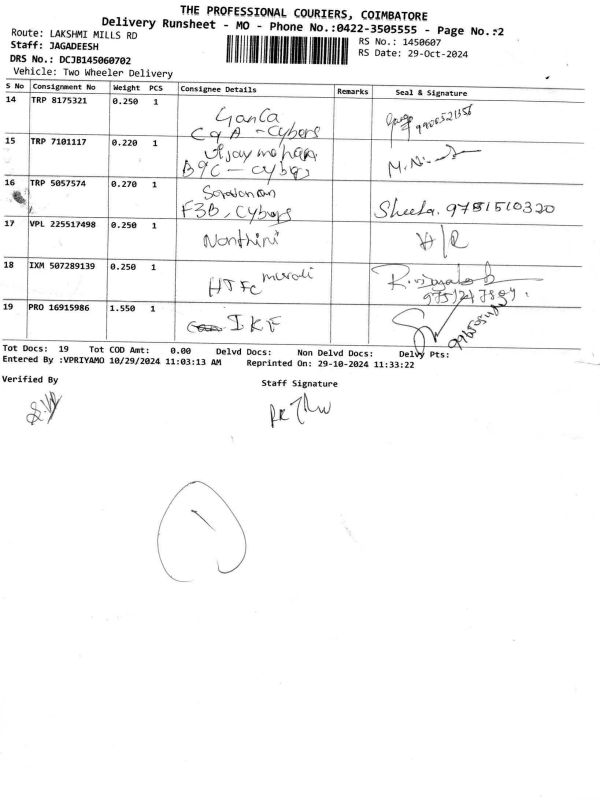 THE PROFESSIONAL COURIERS, COIMBATORE
Delivery Runsheet - MO - Phone No.:0422-3505555 - Page No.:2
Route: LAKSHMI MILLS RD
RS No.: 1450607
Staff: JAGADEESH
RS Date: 29-Oct-2024
DRS No.: DCJB145060702
Vehicle: Two Wheeler Delivery
S No Consignment No Weight PCS Consignee Details Remarks Seal & Signature
14 TRP 8175321 0.250 1
C9A - Cybers
15 TRP 7101117 0.220 1
B9C - Cybers
16 TRP 5057574 0.270 1 Saravanan
F3B, Cybers Sheeba. 9751510320
17 VPL 225517498 0.250 1 Nanthini
18 IXM 507289139 0.250 1 murali
19 PRO 16915986 1.550 1 IKF
Tot Docs: 19 Tot COD Amt: 0.00 Delvd Docs: Non Delvd Docs: Delvy Pts:
Entered By :VPRIYAMO 10/29/2024 11:03:13 AM Reprinted On: 29-10-2024 11:33:22
Verified By Staff Signature